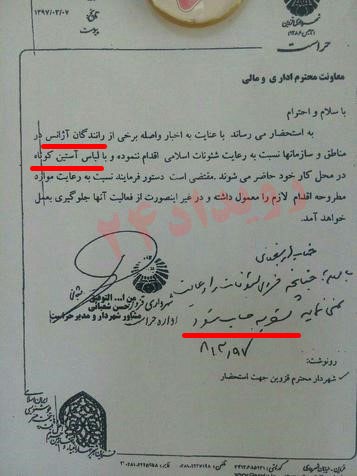 شهرداری قزوین
تاریخ ۱۳۹۷/۰۳/۰۷
پیوست
حراست
معاونت محترم اداری و مالی
با سلام و احترام
به استحضار می رساند با عنایت به اخبار واصله برخی از رانندگان آژانس در
مناطق و سازمانها نسبت به رعایت شئونات اسلامی اقدام ننموده و با لباس آستین کوتاه
در محل کار خود حاضر می شوند. مقتضی است دستور فرمایند نسبت به رعایت موارد
مطروحه اقدام لازم را معمول داشته و در غیر اینصورت از فعالیت آنها جلوگیری بعمل
خواهد آمد.
رویداد۲۴
من ا... التوفیق
حسن شعبانی
مشاور شهردار و مدیر حراست
شهرداری قزوین
اداره حراست
جناب
با سلام چنانچه فردی شئونات را رعایت
نمی نماید تسویه حساب شود
۹۷/۳/۸
رونوشت:
شهردار محترم قزوین جهت استحضار